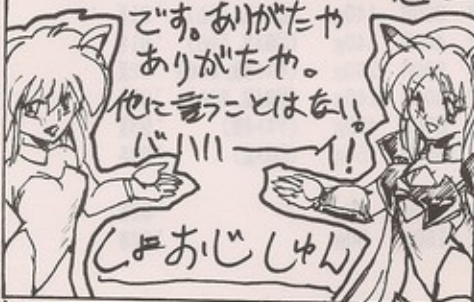 です。ありがたや
ありがたや。
他に言うことはない。
バハハーイ!
しょおじ しゅん